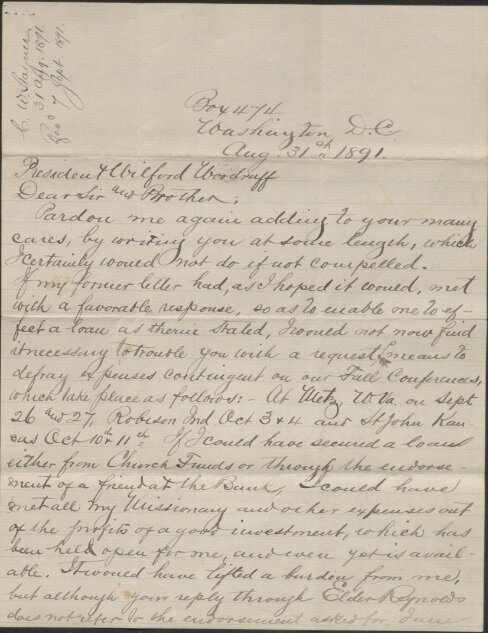 C. W. Stayner
31 Aug. 1891.
Recd 7 Sept. 1891.
Box 474.
Washington D.C.
Aug. 31st, 1891.
President Wilford Woodruff
Dear Sir and Brother;
Pardon me again adding to your many
cares, by writing you at some length, which
I certainly would not do if not compelled.
If my former letter had, as I hoped it would, met
with a favorable response, so as to enable me to ef-
fect a loan as therein stated, I would not now find
it necessary to trouble you with a request means to
defray expenses contingent on our Fall Conferences,
which take place as follows:- At Metz, W. Va. on Sept
26 and 27, Robison Ind Oct 3 & 4 and St John Kan-
sas Oct 10 & 11th. If I could have secured a loan
either from Church Funds or through the endorse-
ment of a friend at the Bank, I could have
met all my Missionary and other expenses out
of the profits of a good investment, which has
been held open for me, and even yet is avail-
able. It would have lifted a burden from me,
but although your reply through Elder Reynolds
does not refer to the endorsement asked for, I